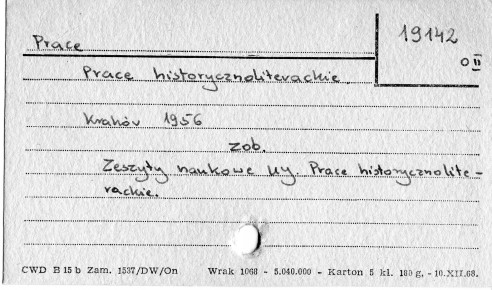 Prace
19142
O II
Prace historycznoliterackie
Kraków 1956
zob.
Zeszyty naukowe UJ. Prace historycznolite-
rackie.
CWD B 15 b Zam. 1537/DW/On Wrak 1068 - 5.040.000 - Karton 5 kl. 180 g, - 10.XII.68.